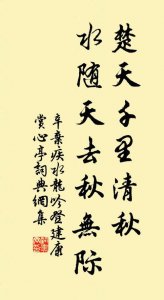 楚天千里清秋
水随天去秋無际
辛棄疾水龍吟登建康
賞心亭詞典網集